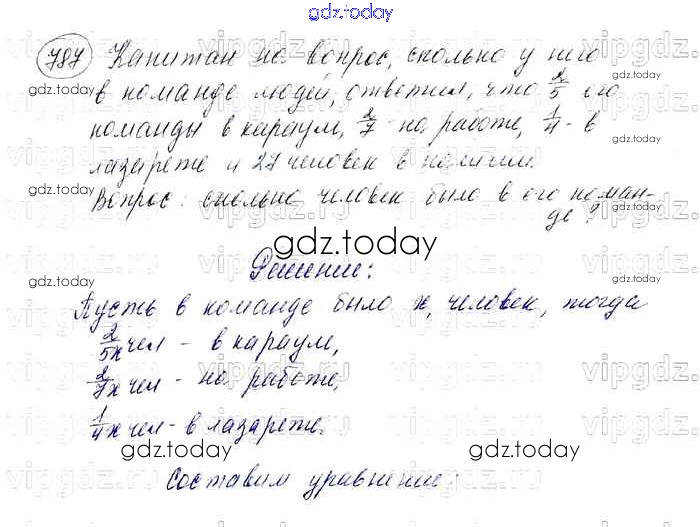 gdz.today
787 Капитан на вопрос, сколько у него
в команде людей, ответил, что 2/5 его
команды в карауле, 2/7 - на работе, 1/4 - в
лазарете и 27 человек в наличии.
Вопрос: сколько человек было в его коман-
де?
gdz.today
Решение:
Пусть в команде было x, человек, тогда
2/5x чел - в карауле,
2/7x чел - на работе,
1/4x чел - в лазарете.
gdz.today
gdz.today
Составим уравнение: